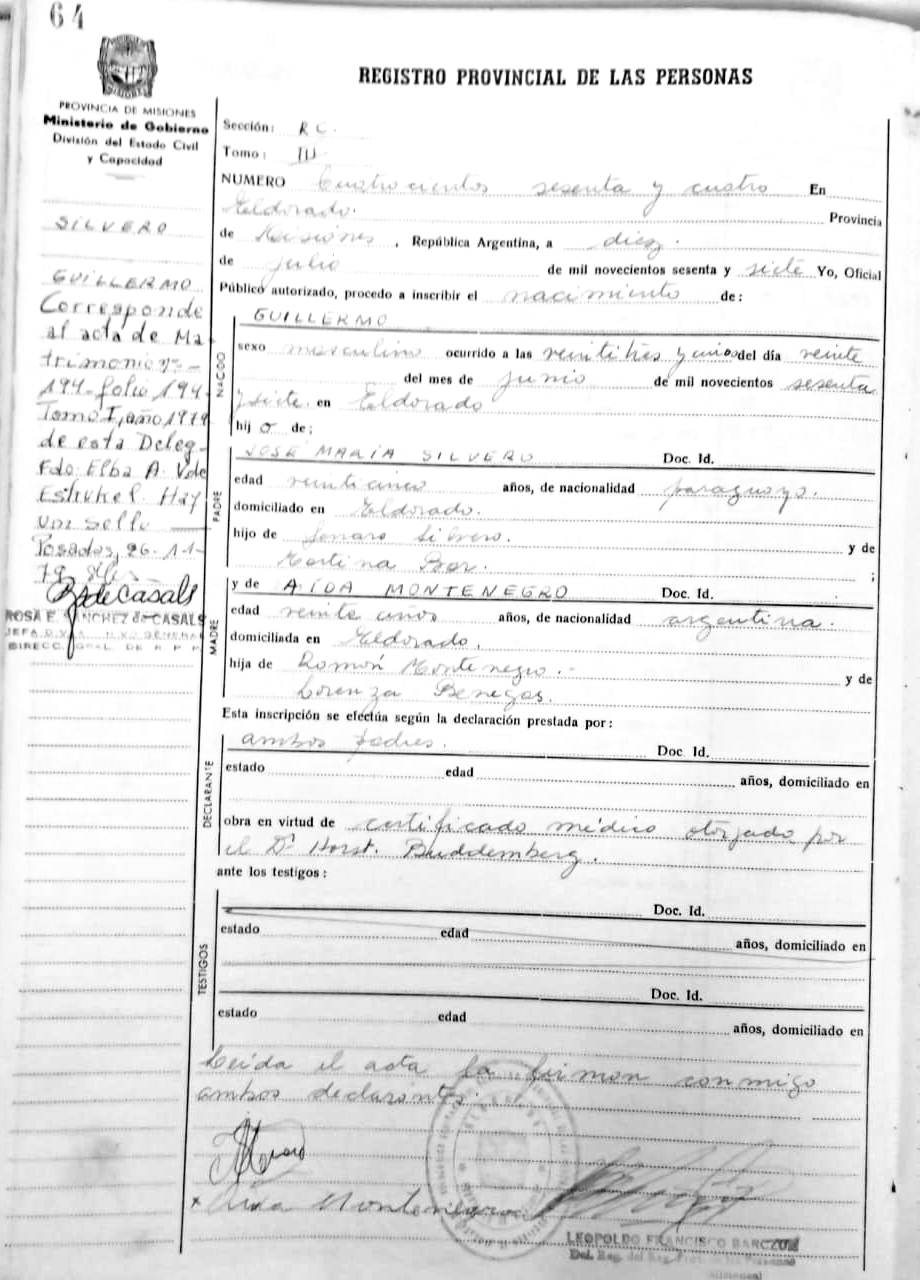 64
PROVINCIA DE MISIONES
Ministerio de Gobierno
División del Estado Civil
y Capacidad
SILVERO
GUILLERMO
Corresponde
al acta de Ma-
trimonio nº
194 folio 194
Tomo I, año 1979
de esta Deleg-
Fdo Elba A. V de
Hay
un sello
Posados, 26-11-
79
ROSA E. SANCHEZ de CASALS
REGISTRO PROVINCIAL DE LAS PERSONAS
Sección: R C.
Tomo: III
NUMERO Cuatrocientos sesenta y cuatro En
Eldorado. Provincia
de Misiones, República Argentina, a diez.
de julio de mil novecientos sesenta y siete Yo, Oficial
Público autorizado, procedo a inscribir el nacimiento de:
NACIDO
GUILLERMO
sexo masculino ocurrido a las veintitrés y del día veinte
del mes de junio de mil novecientos sesenta
y siete en Eldorado
hij o de:
PADRE
JOSÉ MARIA SILVERO Doc. Id.
edad veinticinco años, de nacionalidad paraguayo.
domiciliado en Eldorado.
hijo de Silvero. y de
;
MADRE
y de AÍDA MONTENEGRO Doc. Id.
edad veinte años años, de nacionalidad argentina.
domiciliada en Eldorado.
hija de Ramón Montenegro.- y de
Lorenza Benegas.
Esta inscripción se efectúa según la declaración prestada por:
DECLARANTE
ambos padres. Doc. Id.
estado edad años, domiciliado en
obra en virtud de certificado médico otorjado por
el Dr Horst. Buddemberg.
ante los testigos:
TESTIGOS
Doc. Id.
estado edad años, domiciliado en
Doc. Id.
estado edad años, domiciliado en
Leída el acta la firman conmigo
ambos declarantes.
Aida Montenegro
LEOPOLDO FRANCISCO BARCZUK